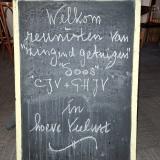 Welkom
reünisten van
"Zingend getuigen"
"SOOS"
"CJV + GHJV
in
hoeve Veelust